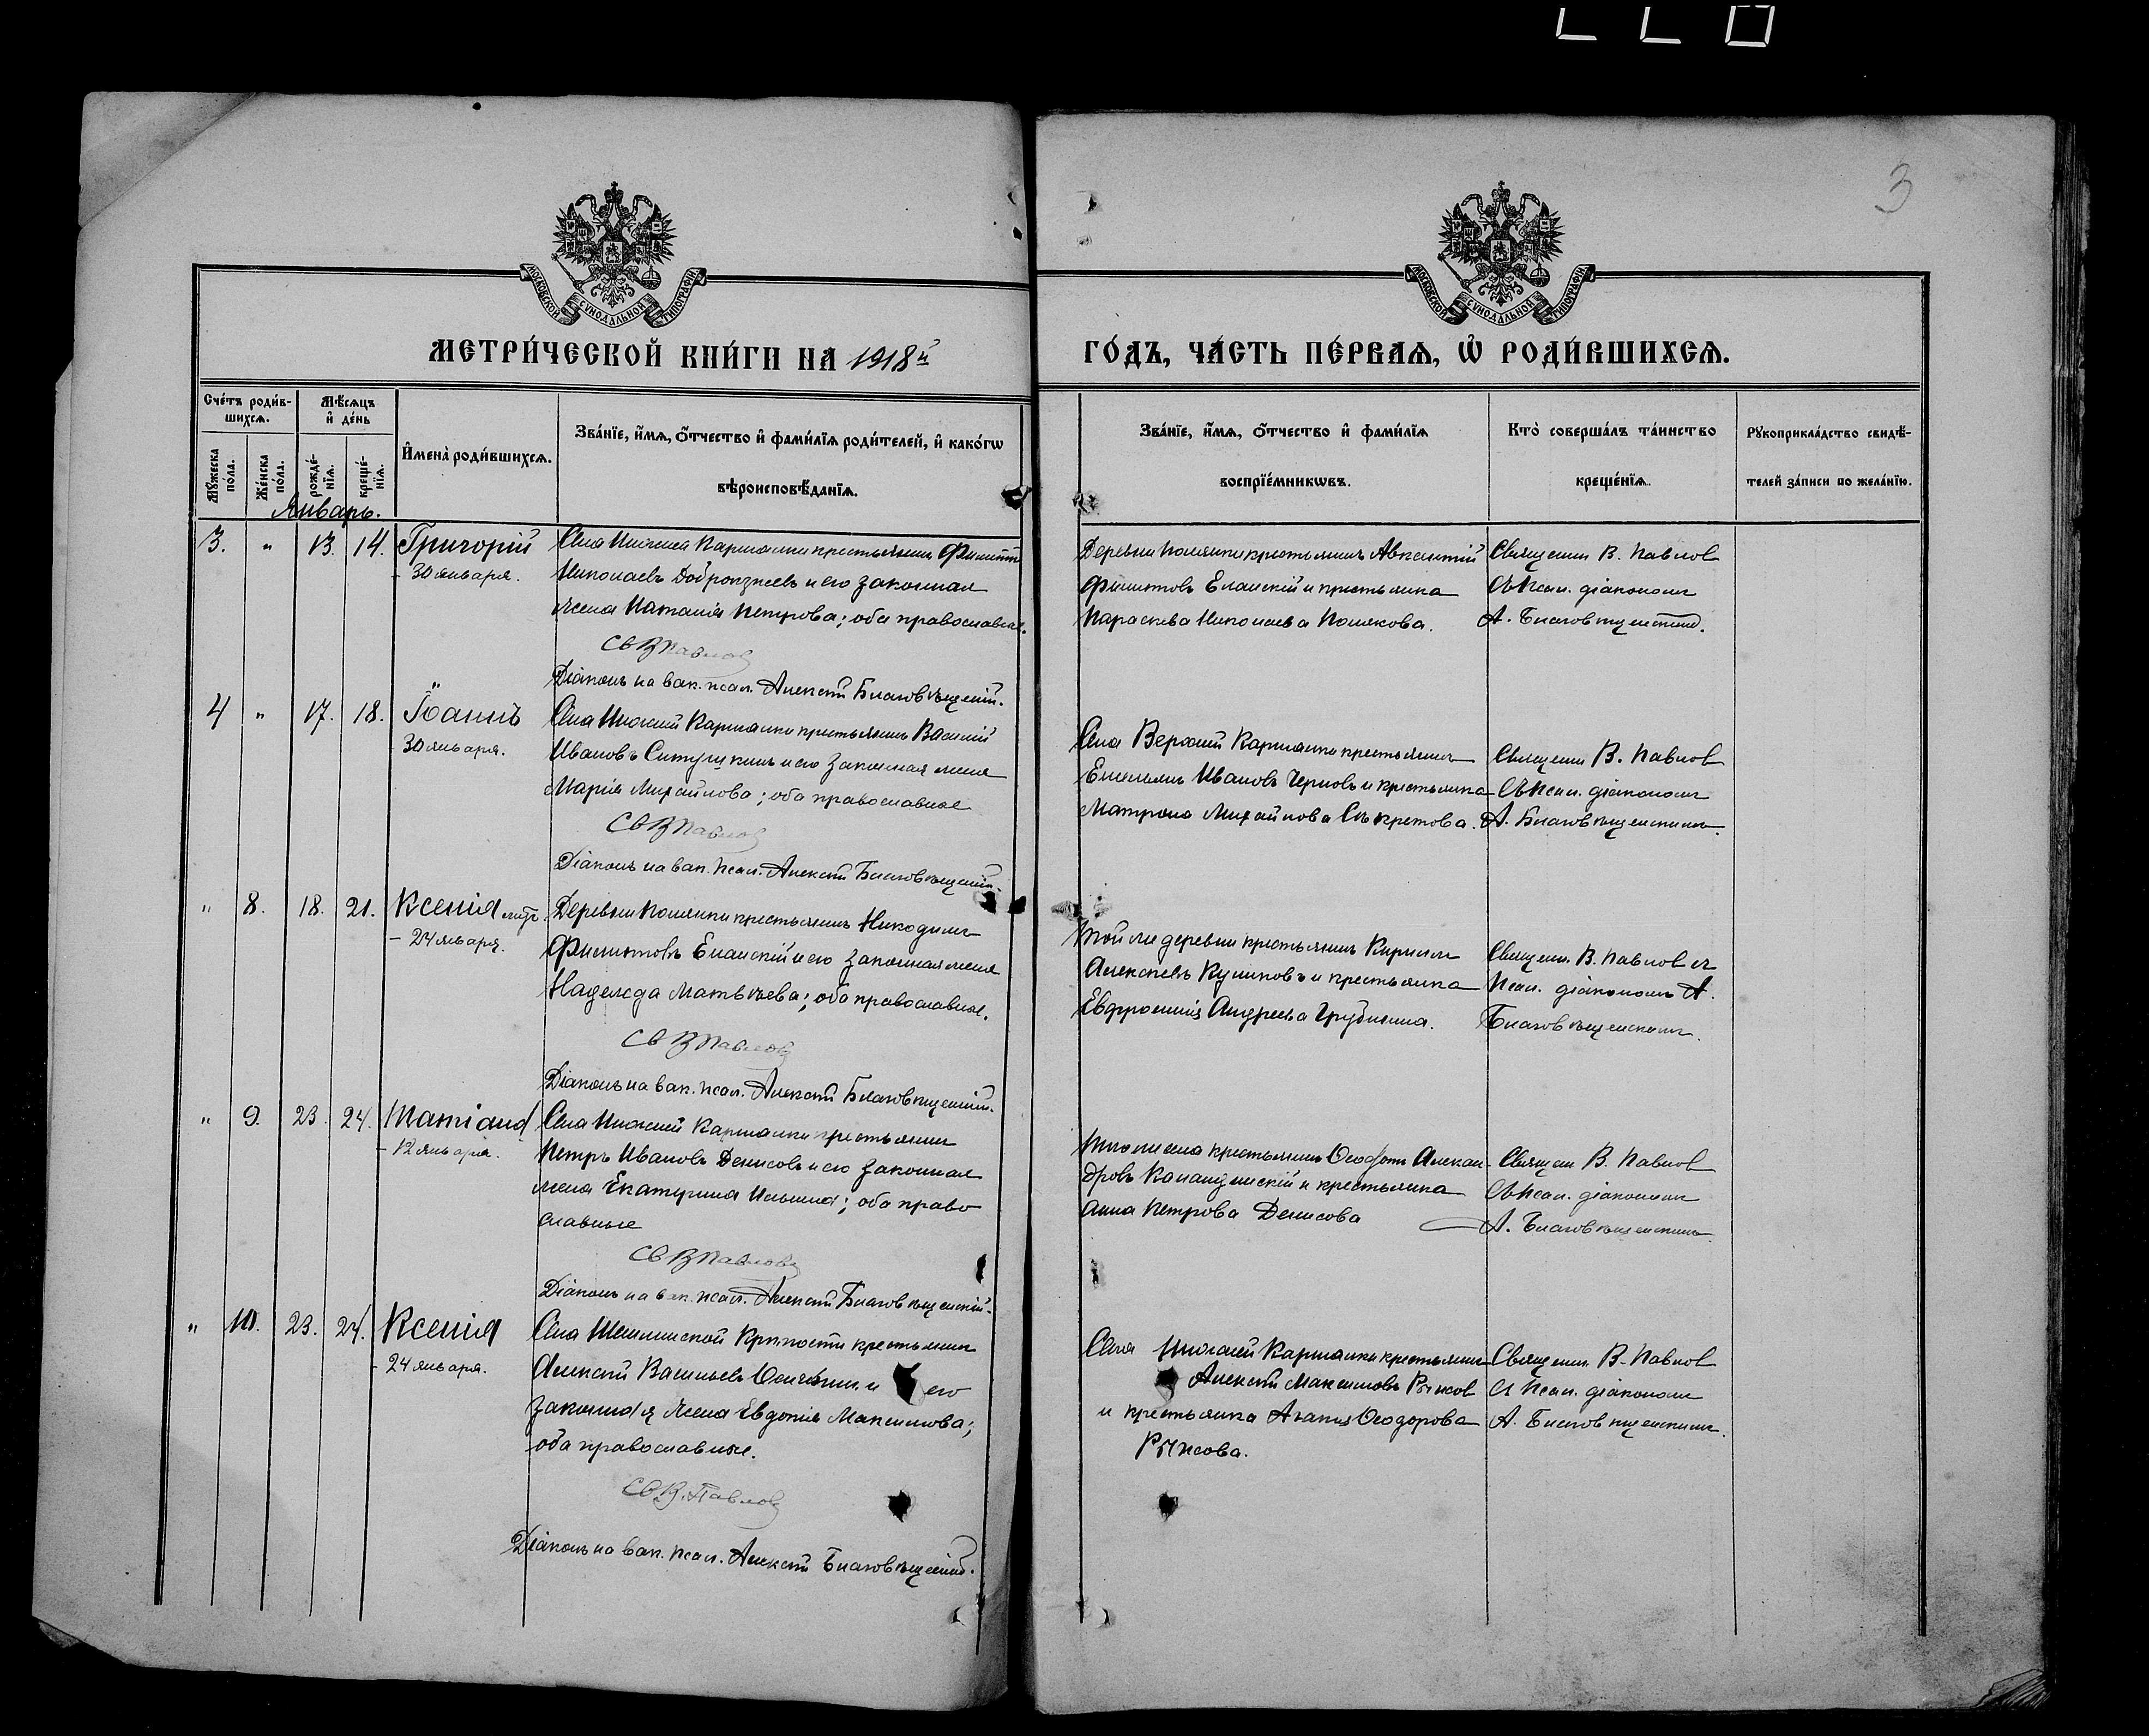 3
МОСКОВСКОЙ СѴНОДАЛЬНОЙ ТИПОГРАФІИ
МОСКОВСКОЙ СѴНОДАЛЬНОЙ ТИПОГРАФІИ
МЕТРИ́ЧЕСКОЙ КНИ́ГИ НА 1918й
ГО́ДЪ, ЧА́СТЬ ПЕ́РВАЯ, Ѡ҆ РОДИ́ВШИХСЯ.
Сче́тъ роди́в-
шихся.
Мѣ́сяцъ
и҆ де́нь
Мꙋжеска по́ла.
Же́нска по́ла.
рожде́-
нїя.
креще́-
нїя.
И҆мена̀ роди́вшихся.
Зва́нїе, и҆́мя, ѻ҆́тчество и҆ фами́лїя роди́телей, и҆ како́гѡ
вѣроисповѣ́данїя.
Зва́нїе, и҆́мя, ѻ҆́тчество и҆ фами́лїя
воспрїе́мникѡвъ.
Кто̀ соверша́лъ та́инство
креще́нїя.
Рꙋкоприкла́дство свидѣ́-
телей за́писи по жела́нїю.
Январь.
3. " 13. 14. Григорій
- 30 января.
Села Нижней Кармалки крестьянинъ Филиппъ
Николаевъ и его законная
жена Наталія Петрова; оба православные.
Св В Павловъ
Діаконъ на вак. псал. Алексѣй Благовѣщенскій.
Деревни крестьянинъ Авксентій
Филипповъ Еланскій и крестьянка
Параскева Николаева Полякова.
Священник В. Павлов
съ псал. діаконом
А. Благовѣщенским.
4 " 17. 18. Іоаннъ
30 января.
Села Нижней Кармалки крестьянинъ Василій
Ивановъ и его законная жена
Марія Михайлова; оба православные
Св В Павловъ
Діаконъ на вак. псал. Алексѣй Благовѣщенскій.
Села Верхней Кармалки крестьянинъ
Емельянъ Ивановъ Черновъ и крестьянка
Матрона Михайлова Секретова.
Священник В. Павлов
съ псал. діаконом
А. Благовѣщенским.
" 8. 18. 21. Ксенія
- 24 января.
Деревни крестьянинъ Никодимъ
Филипповъ Еланскій и его законная жена
Надежда Матвѣева; оба православные.
Св В Павловъ
Діаконъ на вак. псал. Алексѣй Благовѣщенскій.
Той же деревни крестьянинъ Кириллъ
Алексѣевъ Куликовъ и крестьянка
Евфросинія Андреева
Священник В. Павлов съ
псал. діаконом А.
Благовѣщенским.
" 9. 23. 24. Татіана
- 12 января.
Села Нижней Кармалки крестьянинъ
Петръ Ивановъ Денисовъ и его законная
жена Екатерина Ильина; оба право
славные
Св В Павловъ
Діаконъ на вак. псал. Алексѣй Благовѣщенскій.
Того же села крестьянинъ Алексан-
дровъ и крестьянка
Анна Петрова Денисова
Священ В. Павлов
съ псал. діаконом
А. Благовѣщенским.
" 10. 23. 24. Ксенія
- 24 января.
Села Шешминской Крѣпости крестьянинъ
Алексѣй Васильевъ и его
законная жена Евдокія Максимова;
оба православные.
Св В. Павловъ
Діаконъ на вак. псал. Алексѣй Благовѣщенскій.
Села Нижней Кармалки крестьянин
Алексѣй Максимовъ Рыжов
и крестьянка Агапія Ѳеодорова
Рыжова.
Священник В. Павлов
съ псал. діаконом
А. Благовѣщенским.